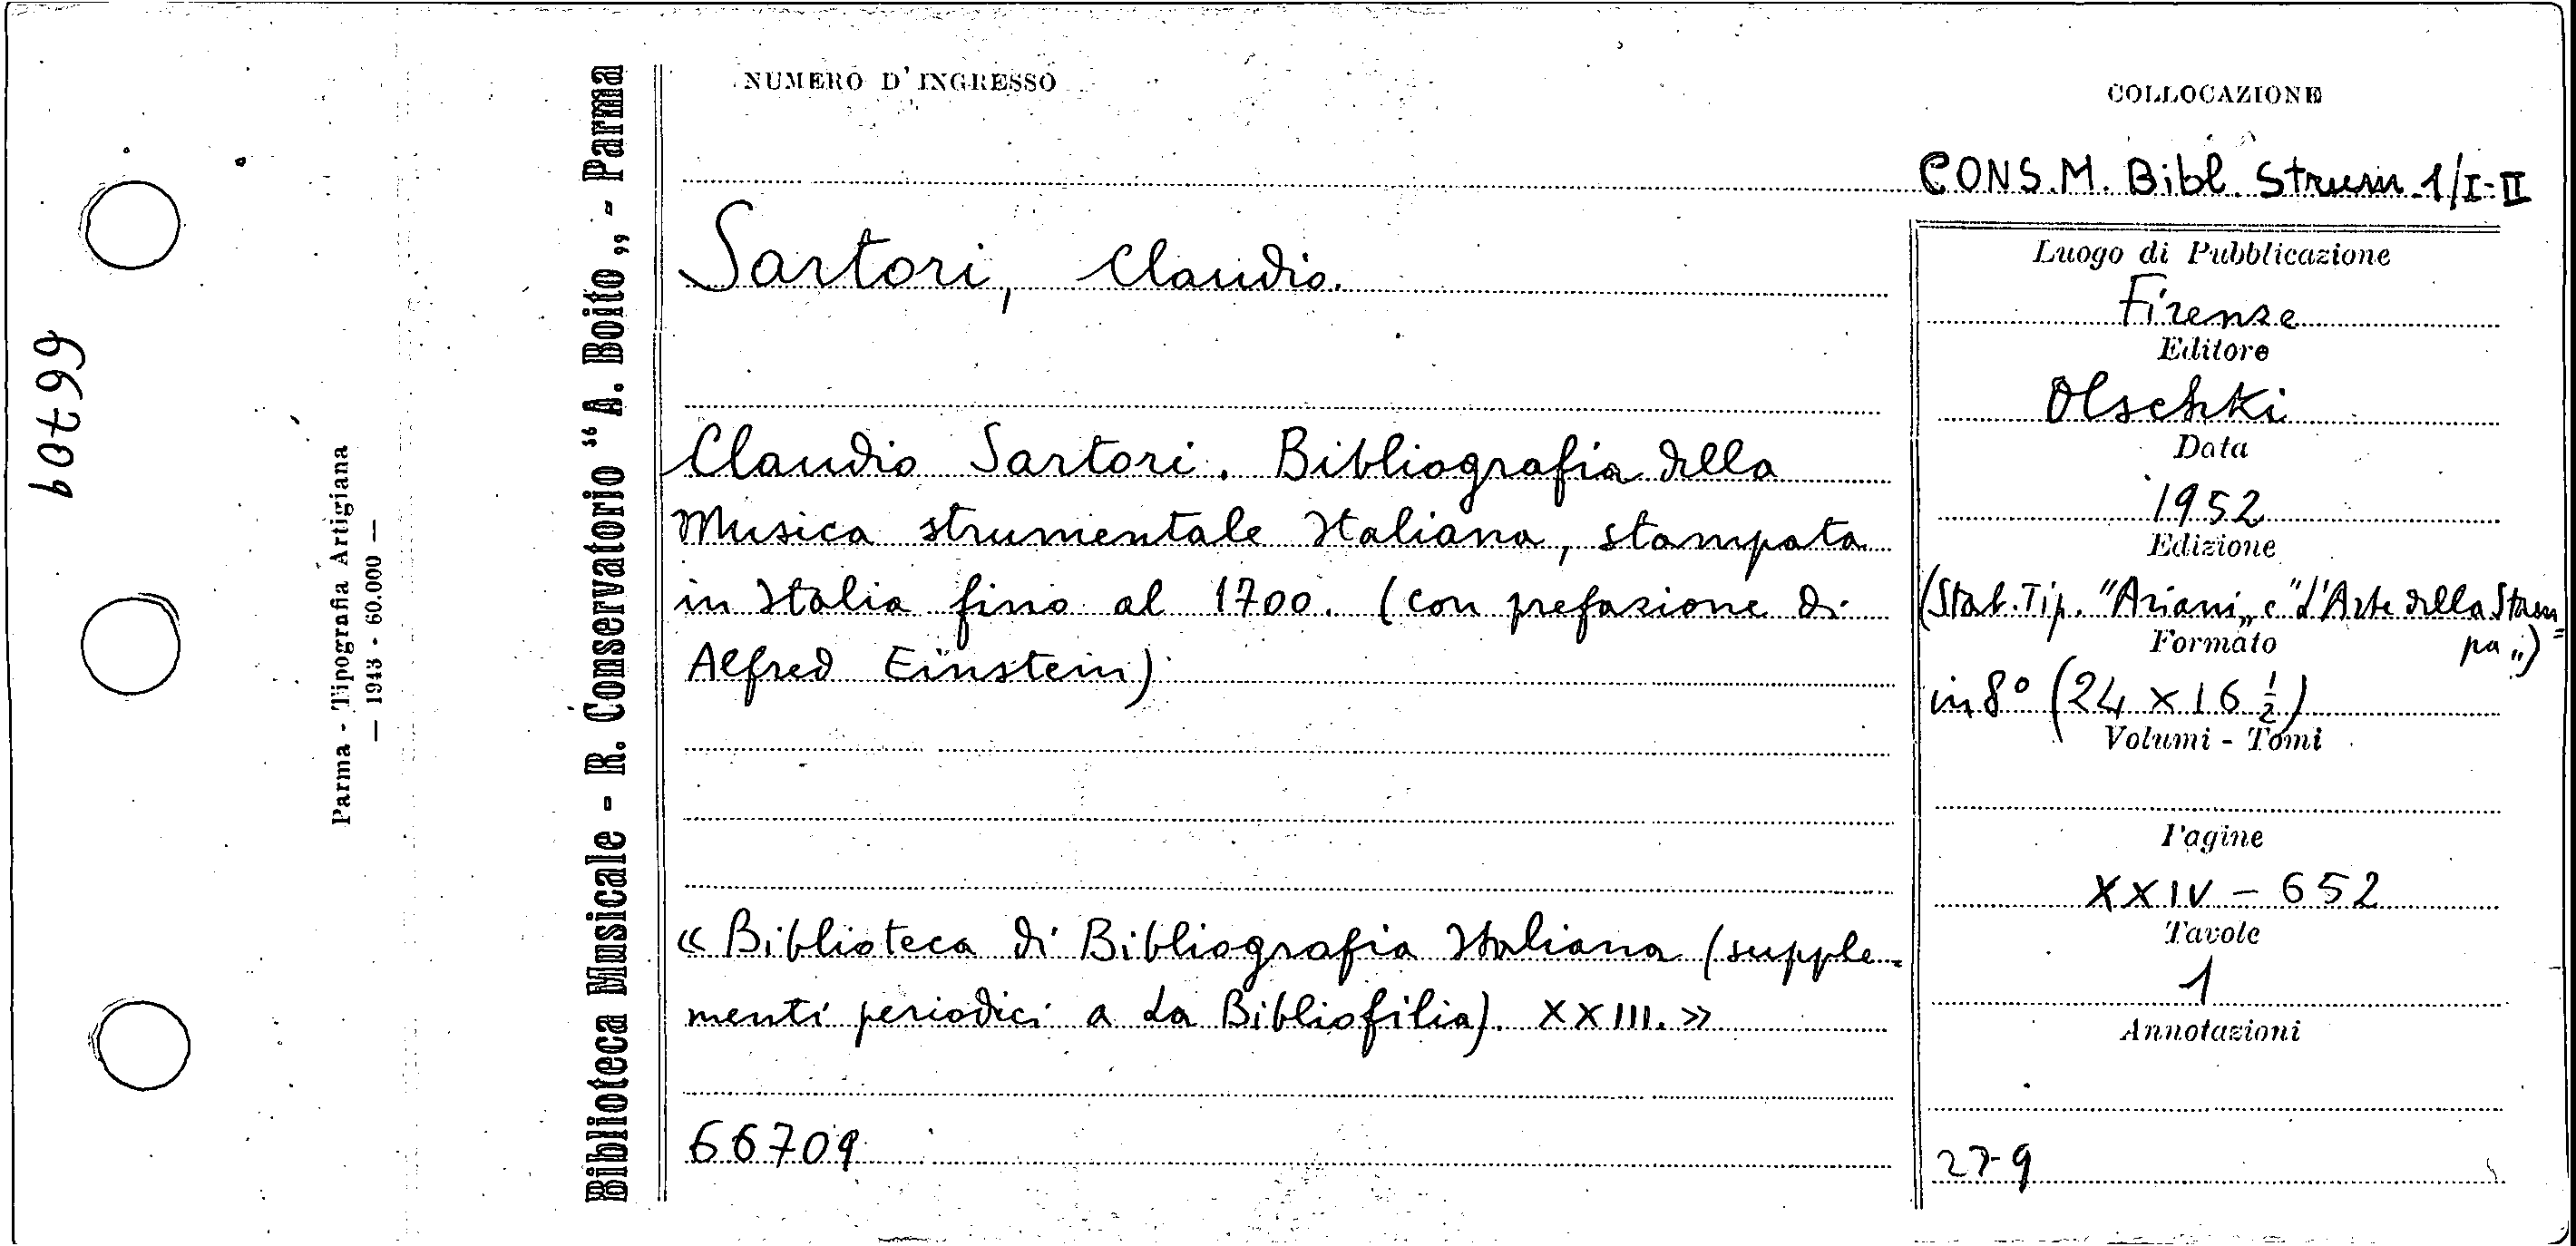 66709
Parma - Tipografia Artigiana
— 1943 - 60.000 —
Biblioteca Musicale - R. Conservatorio “A. Boito„ - Parma
NUMERO D'INGRESSO
COLLOCAZIONE
CONS.M. Bibl. Strum.1/I-II
Sartori, Claudio.
Claudio Sartori. Bibliografia della
Musica strumentale Italiana, stampata
in Italia fino al 1700. (con prefazione di
Alfred Einstein)
« Biblioteca di Bibliografia Italiana (supple-
menti periodici a La Bibliofilia). XXIII. »
66709
Luogo di Pubblicazione
Firenze
Editore
Olschki
Data
1952
Edizione
(Stab. Tip. "Ariani„ e "L'Arte della Stam=
pa„)
Formato
in 8° (24 x 16 ½)
Volumi - Tomi
Pagine
XXIV - 652
Tavole
1
Annotazioni
27-9